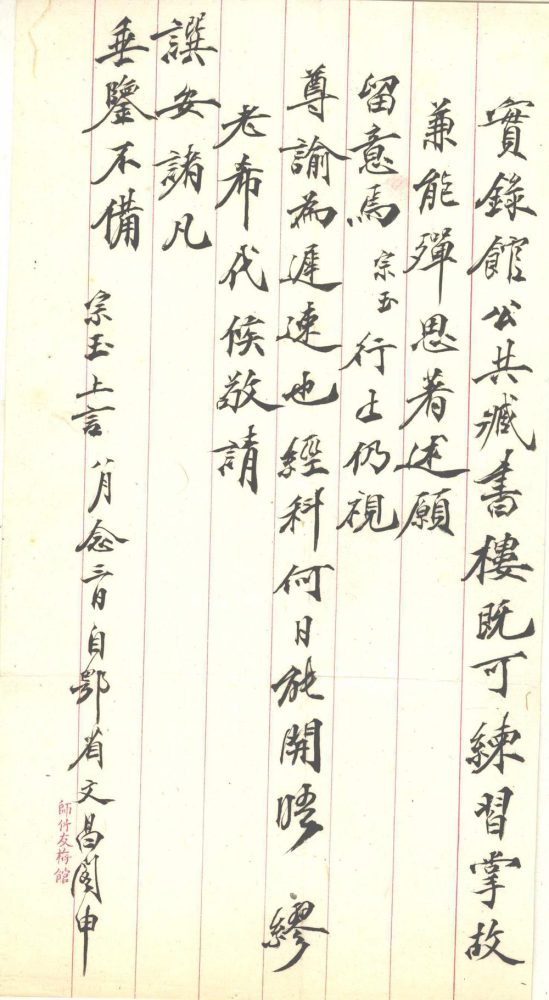 實錄館公共臧書樓既可練習掌故
兼能殫思著述願
留意焉宗玉行止仍視
尊諭為遲速也經科何日能開晤繆
老希代候敬請
譔安諸凡
垂鑒不備
宗玉上言 八月念三日自鄂省文昌閣申
師竹友梅館